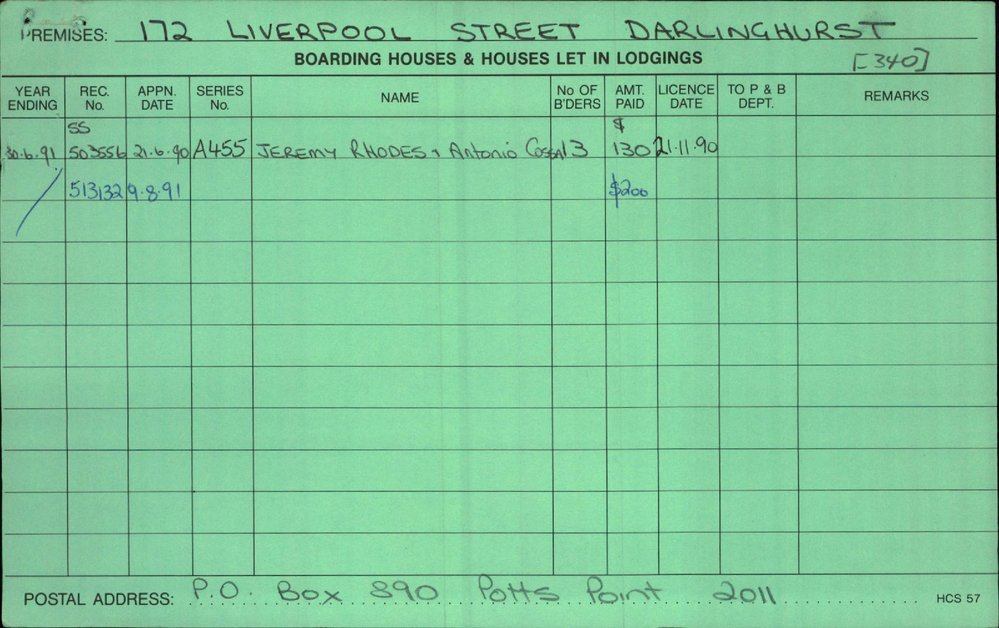 PREMISES: 172 LIVERPOOL STREET DARLINGHURST
BOARDING HOUSES & HOUSES LET IN LODGINGS [340]
YEAR ENDING REC. No. APPN. DATE SERIES No. NAME No OF B'DERS AMT. PAID LICENCE DATE TO P & B DEPT. REMARKS
SS $
30.6.91 503556 21.6.90 A455 JEREMY RHODES & Antonio 13 130 21.11.90
513132 9.8.91 $200
POSTAL ADDRESS: P.O. Box 890 Potts Point 2011 HCS 57